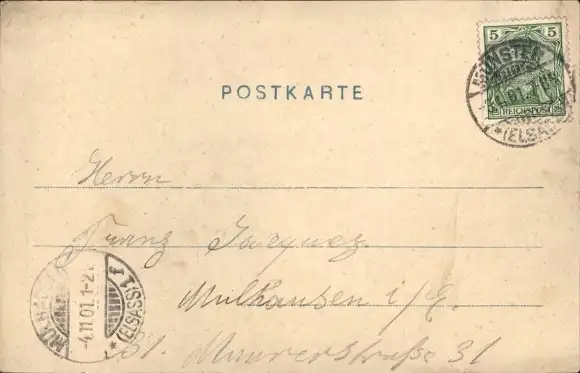 5 5
MÜNSTER
REICHSPOST
*(ELSASS)
POSTKARTE
Herrn
Franz Jacquez.
Mülhausen i/E.
MÜLHAUSEN
-4.11.01. 1-2
*(ELSASS)1 f
Maurerstraße 31